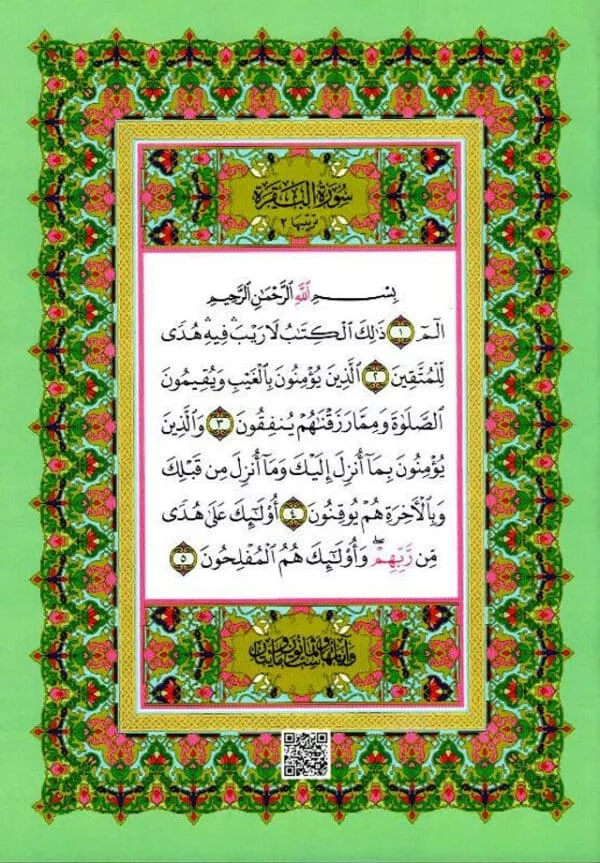 سُورَةُ الْبَقَرَةِ
ترتيبها ٢
بِسْمِ اللَّهِ الرَّحْمَٰنِ الرَّحِيمِ
الٓمٓ ١ ذَٰلِكَ الْكِتَابُ لَا رَيْبَ ۛ فِيهِ ۛ هُدًى
لِّلْمُتَّقِينَ ٢ الَّذِينَ يُؤْمِنُونَ بِالْغَيْبِ وَيُقِيمُونَ
الصَّلَوٰةَ وَمِمَّا رَزَقْنَاهُمْ يُنفِقُونَ ٣ وَالَّذِينَ
يُؤْمِنُونَ بِمَآ أُنزِلَ إِلَيْكَ وَمَآ أُنزِلَ مِن قَبْلِكَ
وَبِالْآخِرَةِ هُمْ يُوقِنُونَ ٤ أُوْلَٰٓئِكَ عَلَىٰ هُدًى
مِّن رَّبِّهِمْ ۖ وَأُوْلَٰٓئِكَ هُمُ الْمُفْلِحُونَ ٥
وآياتها ست وثمانون ومايتان